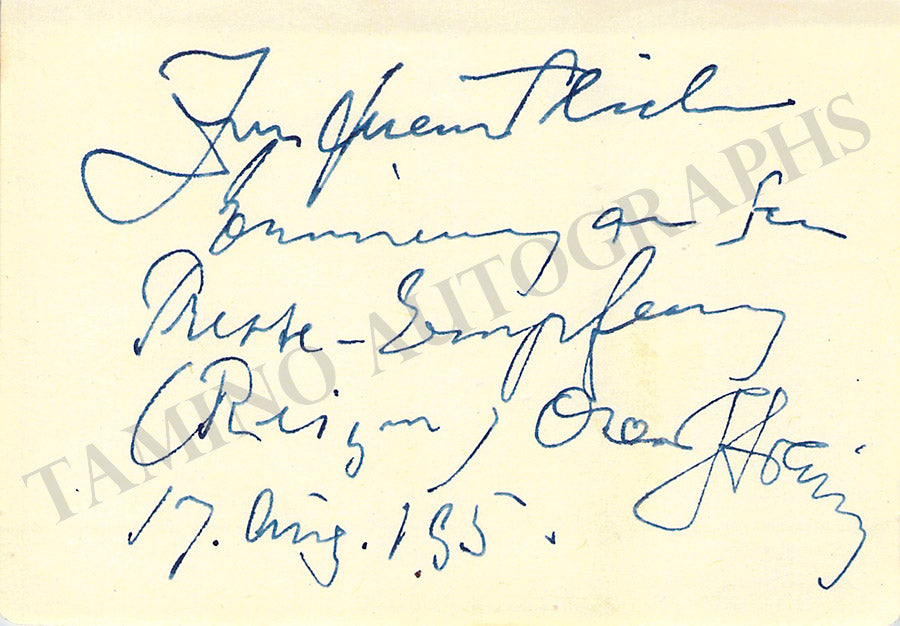 Zur freundlichen
Erinnerung an den
Presse-Empfang
(Reigen) Oscar Straus
17. Aug. 195.
TAMINO AUTOGRAPHS